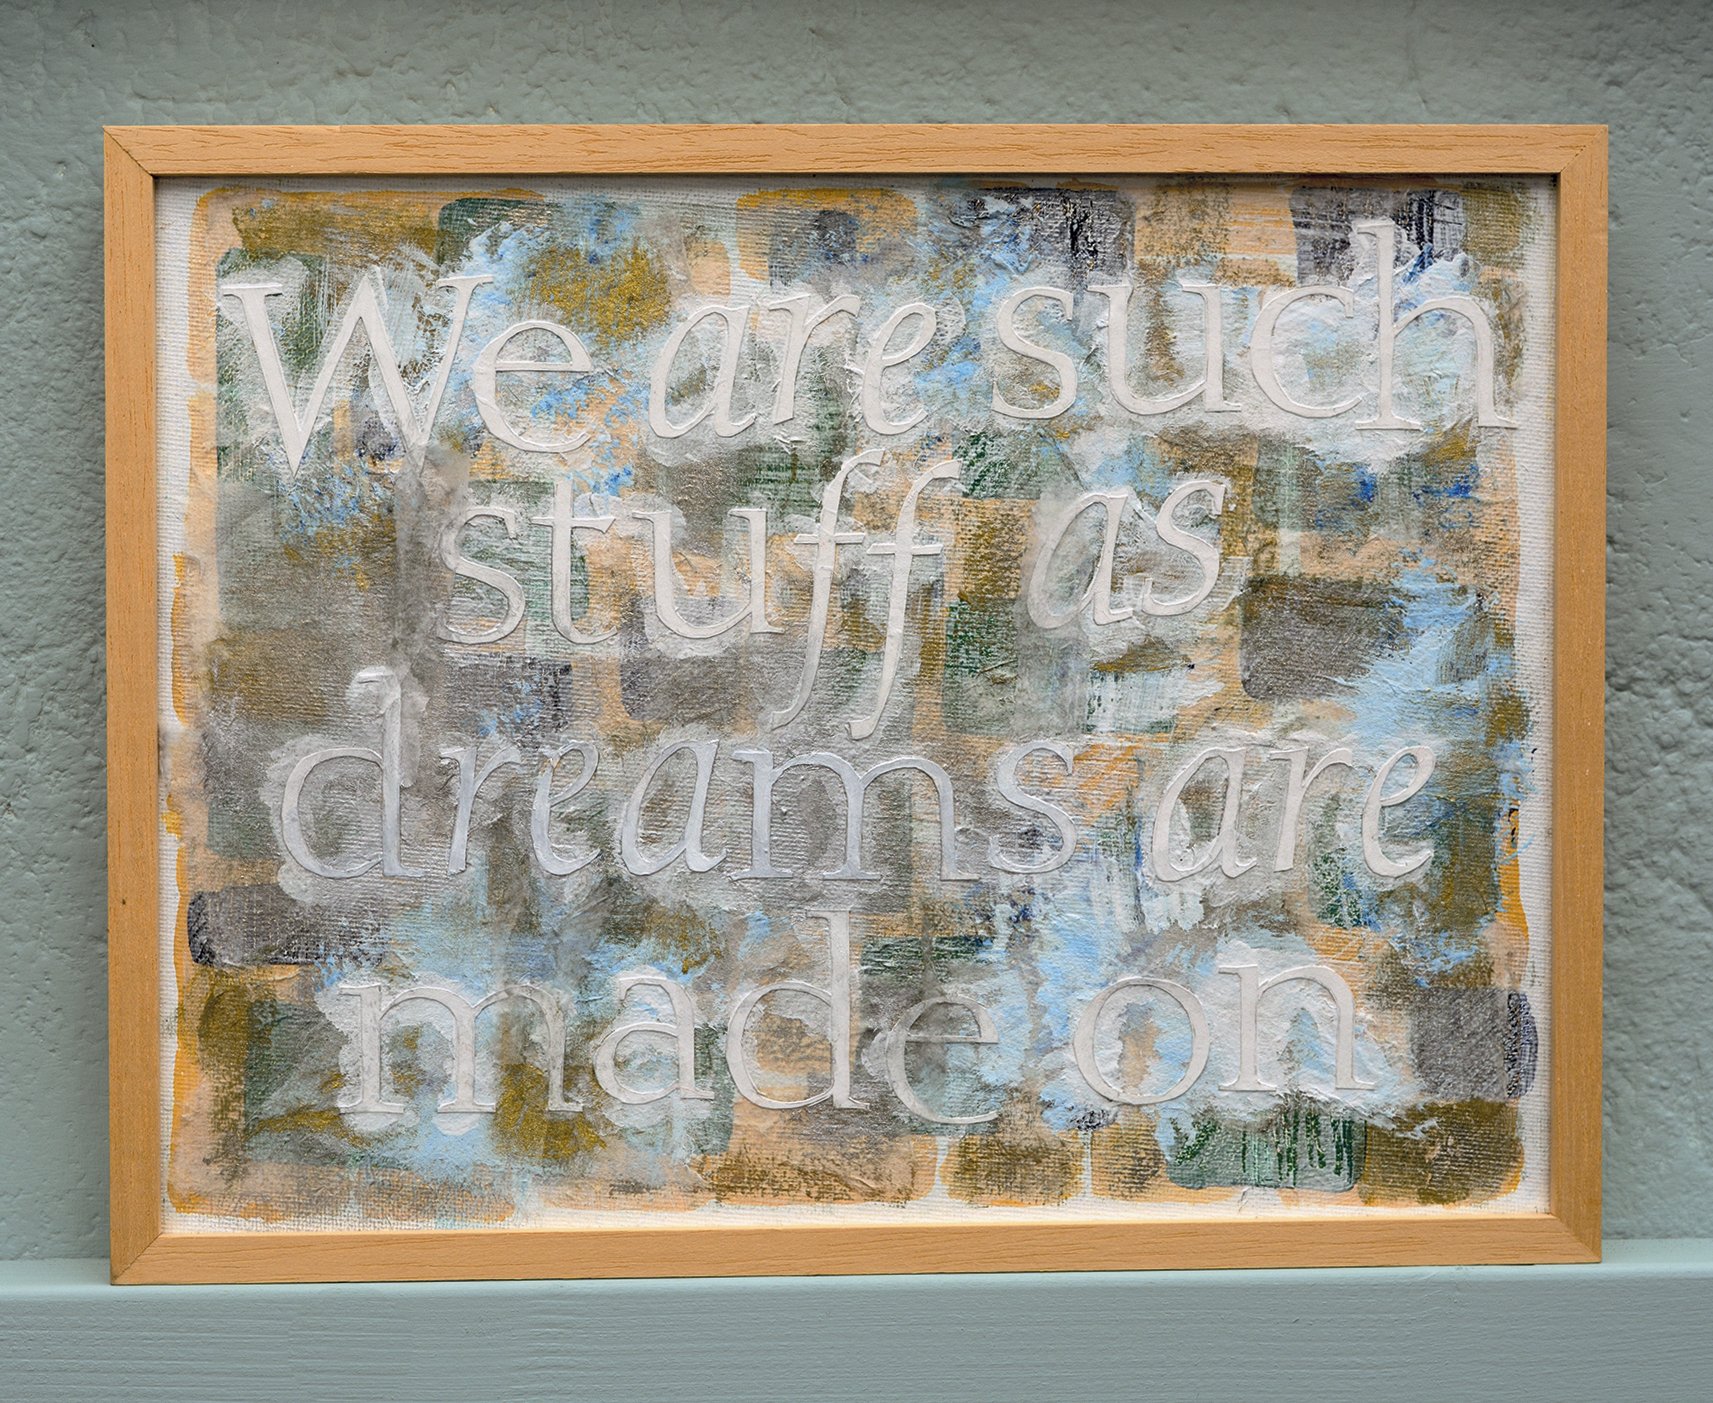 We are such
stuff as
dreams are
made on